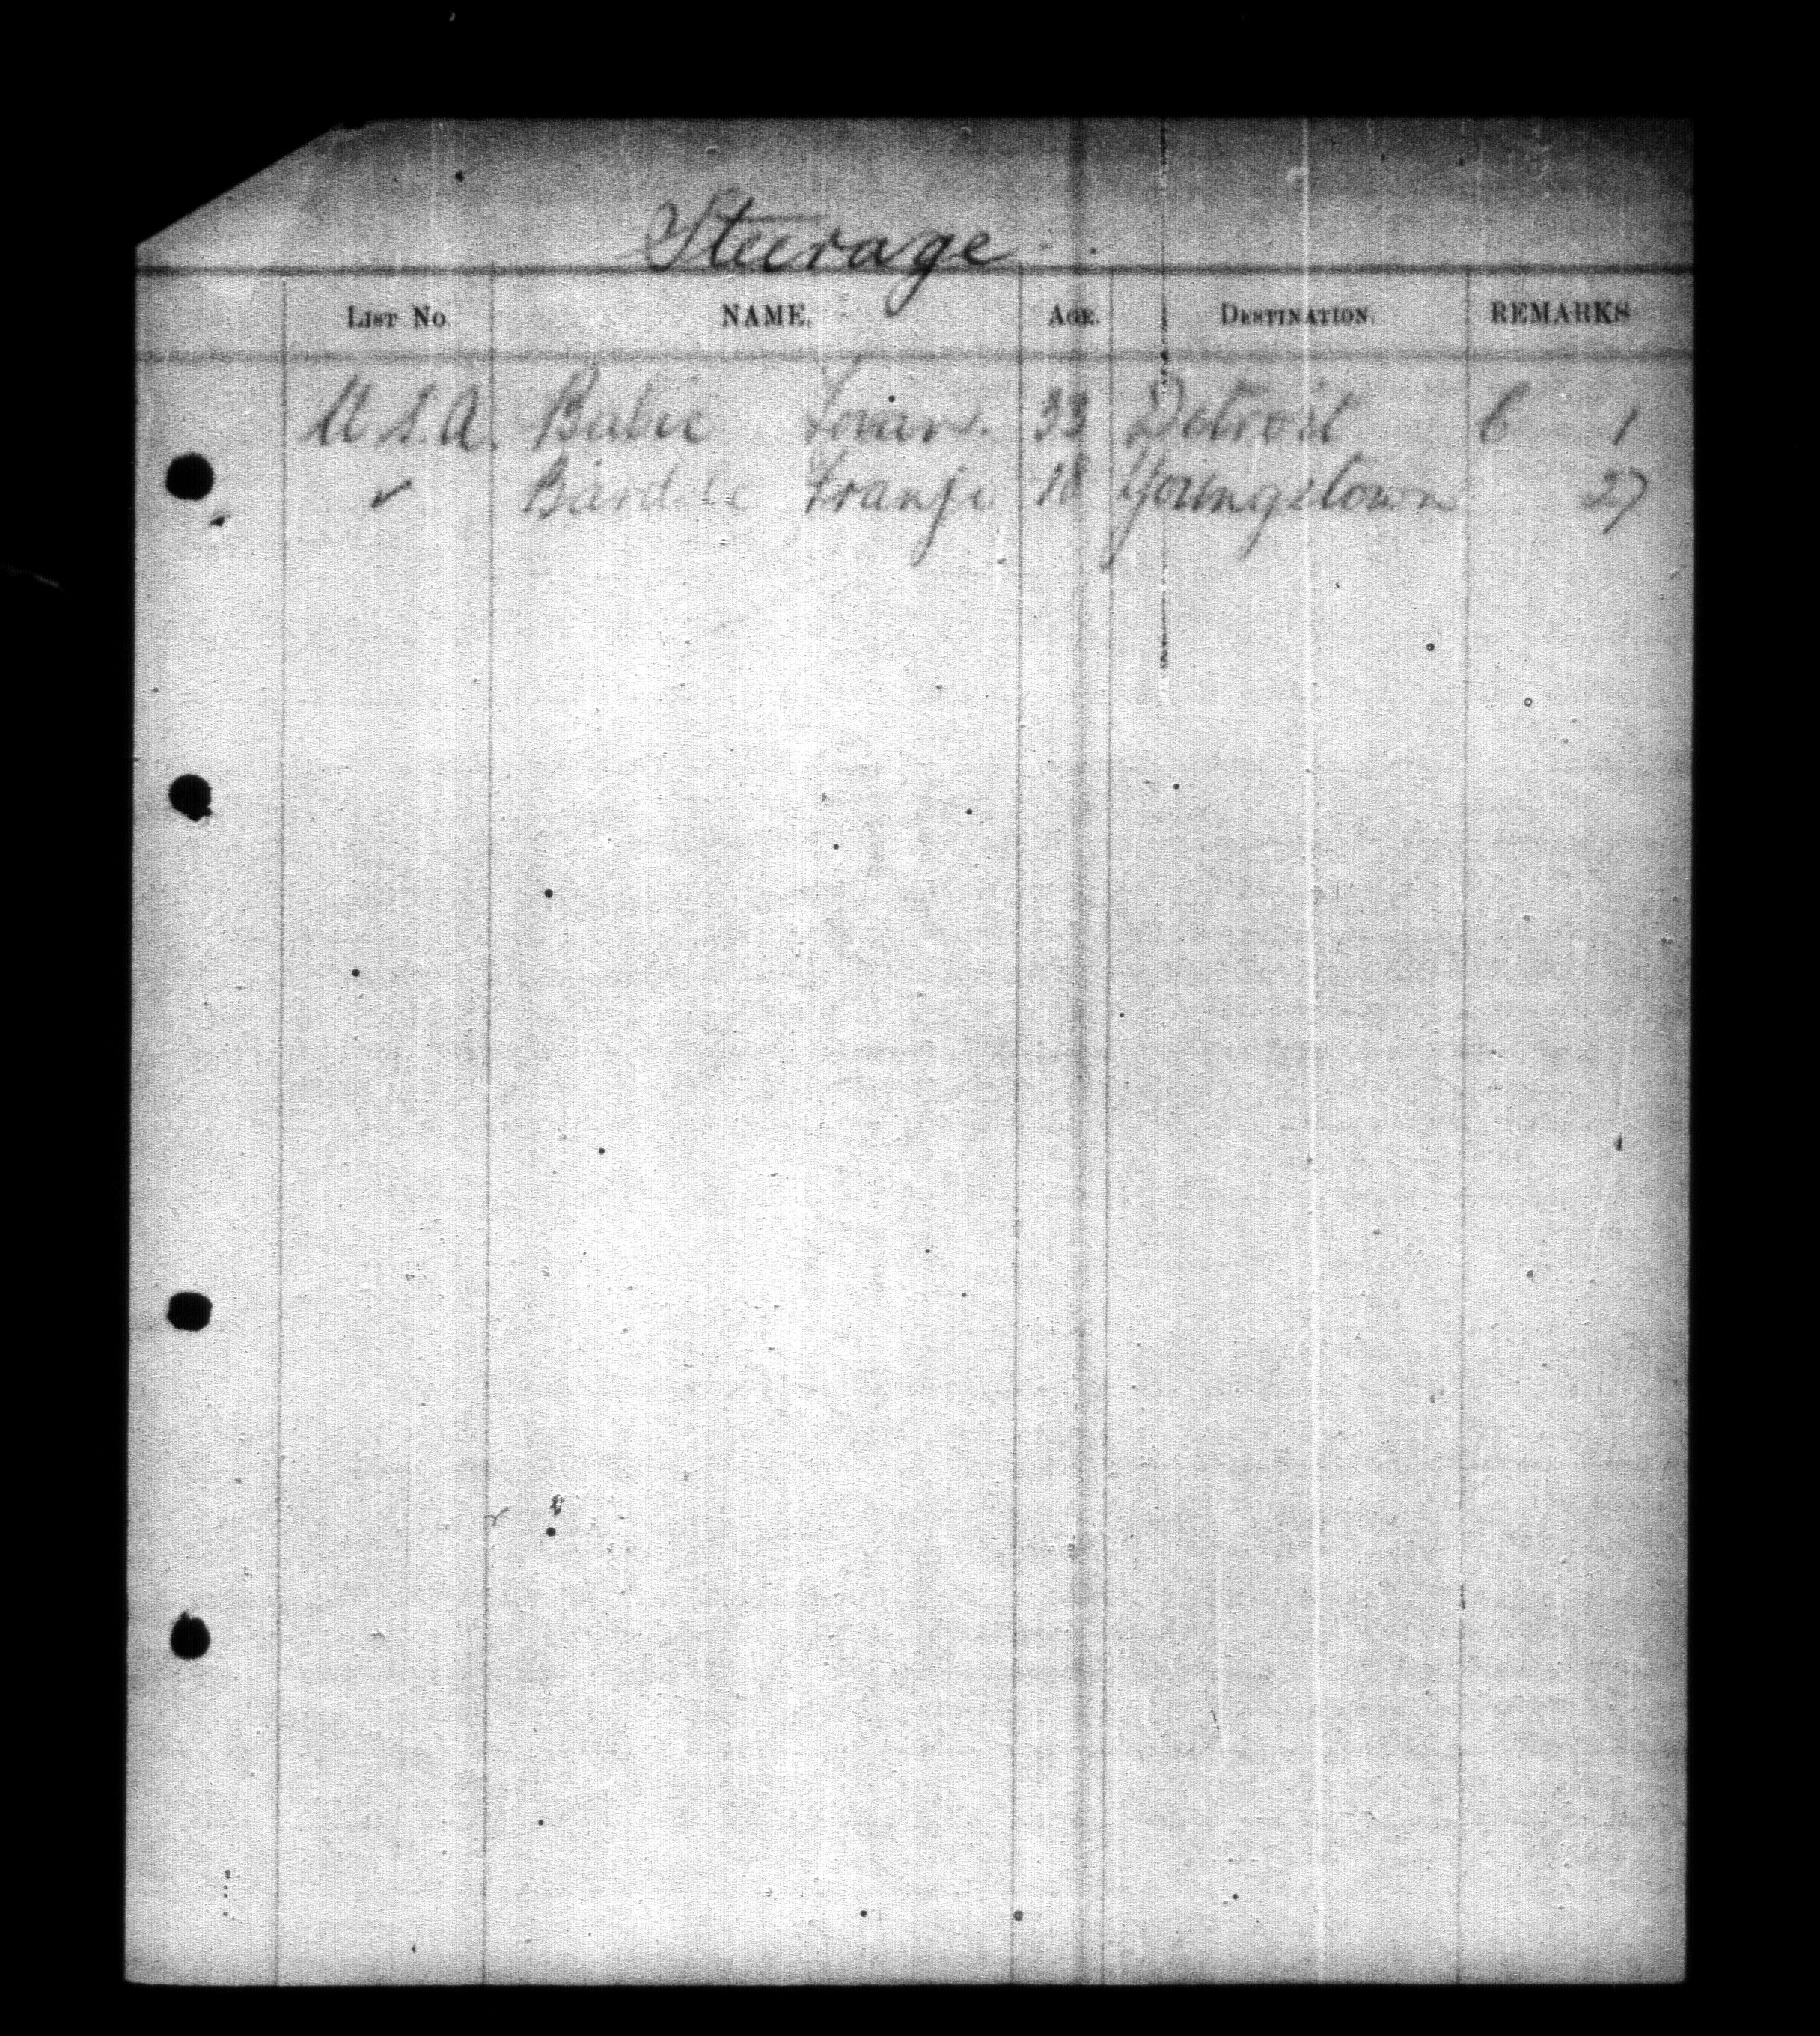 Steerage
LIST No. NAME. AGE. DESTINATION. REMARKS
U.S.A. Babic Jovan. 33 Detroit 6 1
✓ Franjo 18 Youngstown 27